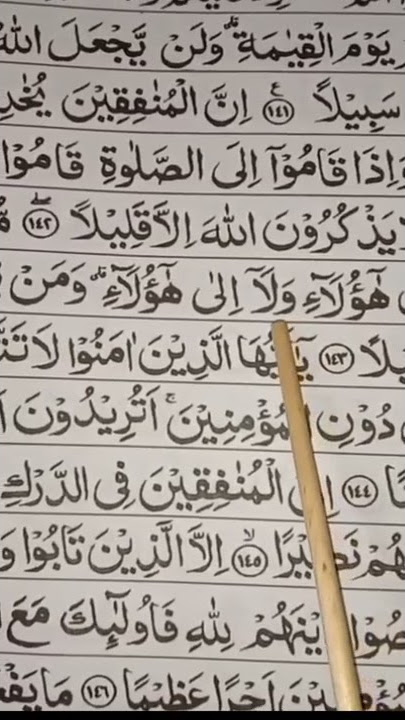 يَوْمَ الْقِيٰمَةِ ؕ وَلَنْ يَّجْعَلَ اللّٰهُ
سَبِيْلًا ۧ ﴿۱۴۱﴾ اِنَّ الْمُنٰفِقِيْنَ
وَاِذَا قَامُوْۤا اِلَى الصَّلٰوةِ قَامُوْا
يَذْكُرُوْنَ اللّٰهَ اِلَّا قَلِيْلًا ﴿۱۴۲﴾
هٰۤؤُلَآءِ وَلَاۤ اِلٰى هٰۤؤُلَآءِ ؕ وَمَنْ
﴿۱۴۳﴾ يٰۤاَيُّهَا الَّذِيْنَ اٰمَنُوْا لَا
دُوْنِ الْمُؤْمِنِيْنَ ؕ اَتُرِيْدُوْنَ
﴿۱۴۴﴾ الْمُنٰفِقِيْنَ فِى الدَّرْكِ
نَصِيْرًا ۙ ﴿۱۴۵﴾ اِلَّا الَّذِيْنَ تَابُوْا وَ
لِلّٰهِ فَاُولٰٓئِكَ مَعَ
اَجْرًا عَظِيْمًا ﴿۱۴۶﴾ مَا